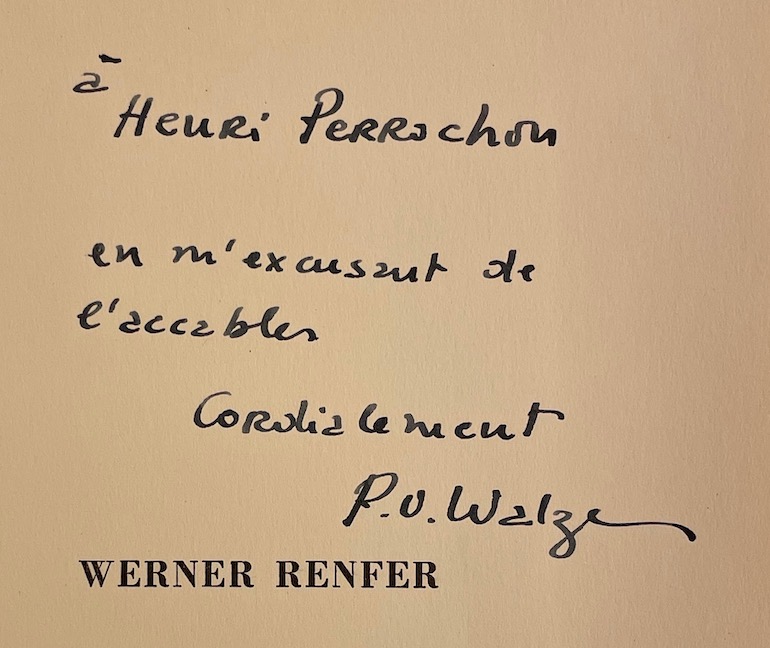 à
Henri Perrochon
en m'excusant de
l'accabler
Cordialement
P.O. Walzer
WERNER RENFER